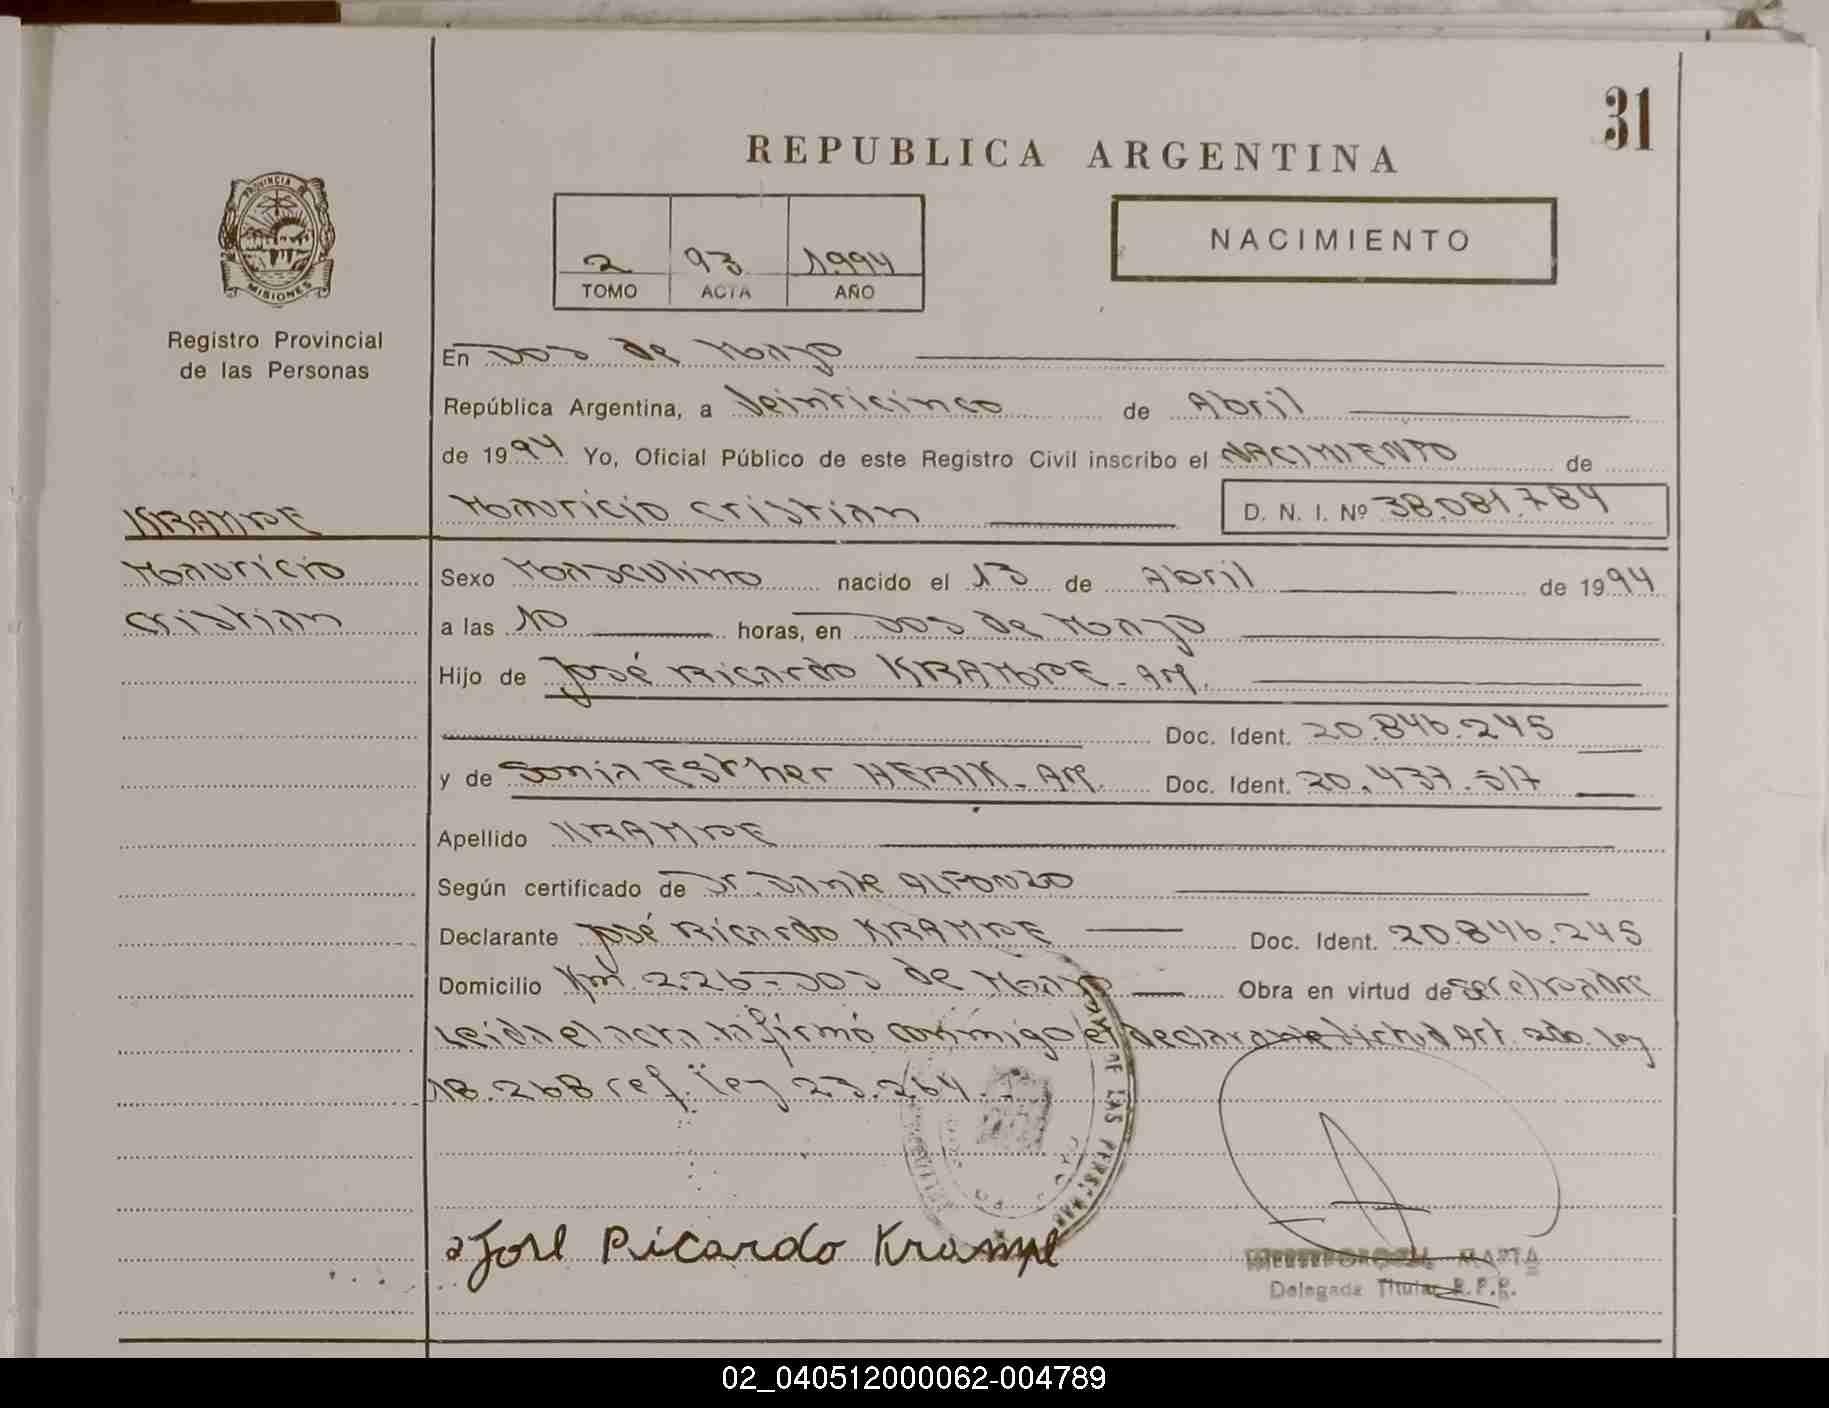 31
REPUBLICA ARGENTINA
PROVINCIA DE
MISIONES
Registro Provincial
de las Personas
2 93 1994
TOMO ACTA AÑO
NACIMIENTO
En Dos de Mayo
República Argentina, a Veinticinco de Abril
de 1994 Yo, Oficial Público de este Registro Civil inscribo el NACIMIENTO de
Mauricio Cristian D. N. I. Nº 38.081.784
KRAMPE
Mauricio
Cristian
Sexo Masculino nacido el 13 de Abril de 1994
a las 10 horas, en Dos de Mayo
Hijo de José Ricardo KRAMPE - Arg.
Doc. Ident. 20.846.245
y de Sonia Esther - Arg. Doc. Ident. 20.437.517
Apellido KRAMPE
Según certificado de Dr. Dante ALFONZO
Declarante José Ricardo KRAMPE Doc. Ident. 20.846.245
Domicilio Km. 226 - Dos de Mayo Obra en virtud de ser el padre
Leida el acta la firmó conmigo el declarante Art. 2do. ley
18.268 ref. ley 23.264.
DE LAS PERSONAS
José Ricardo Krampe
MARTA
Delegada Titular R.P.P.
02_040512000062-004789